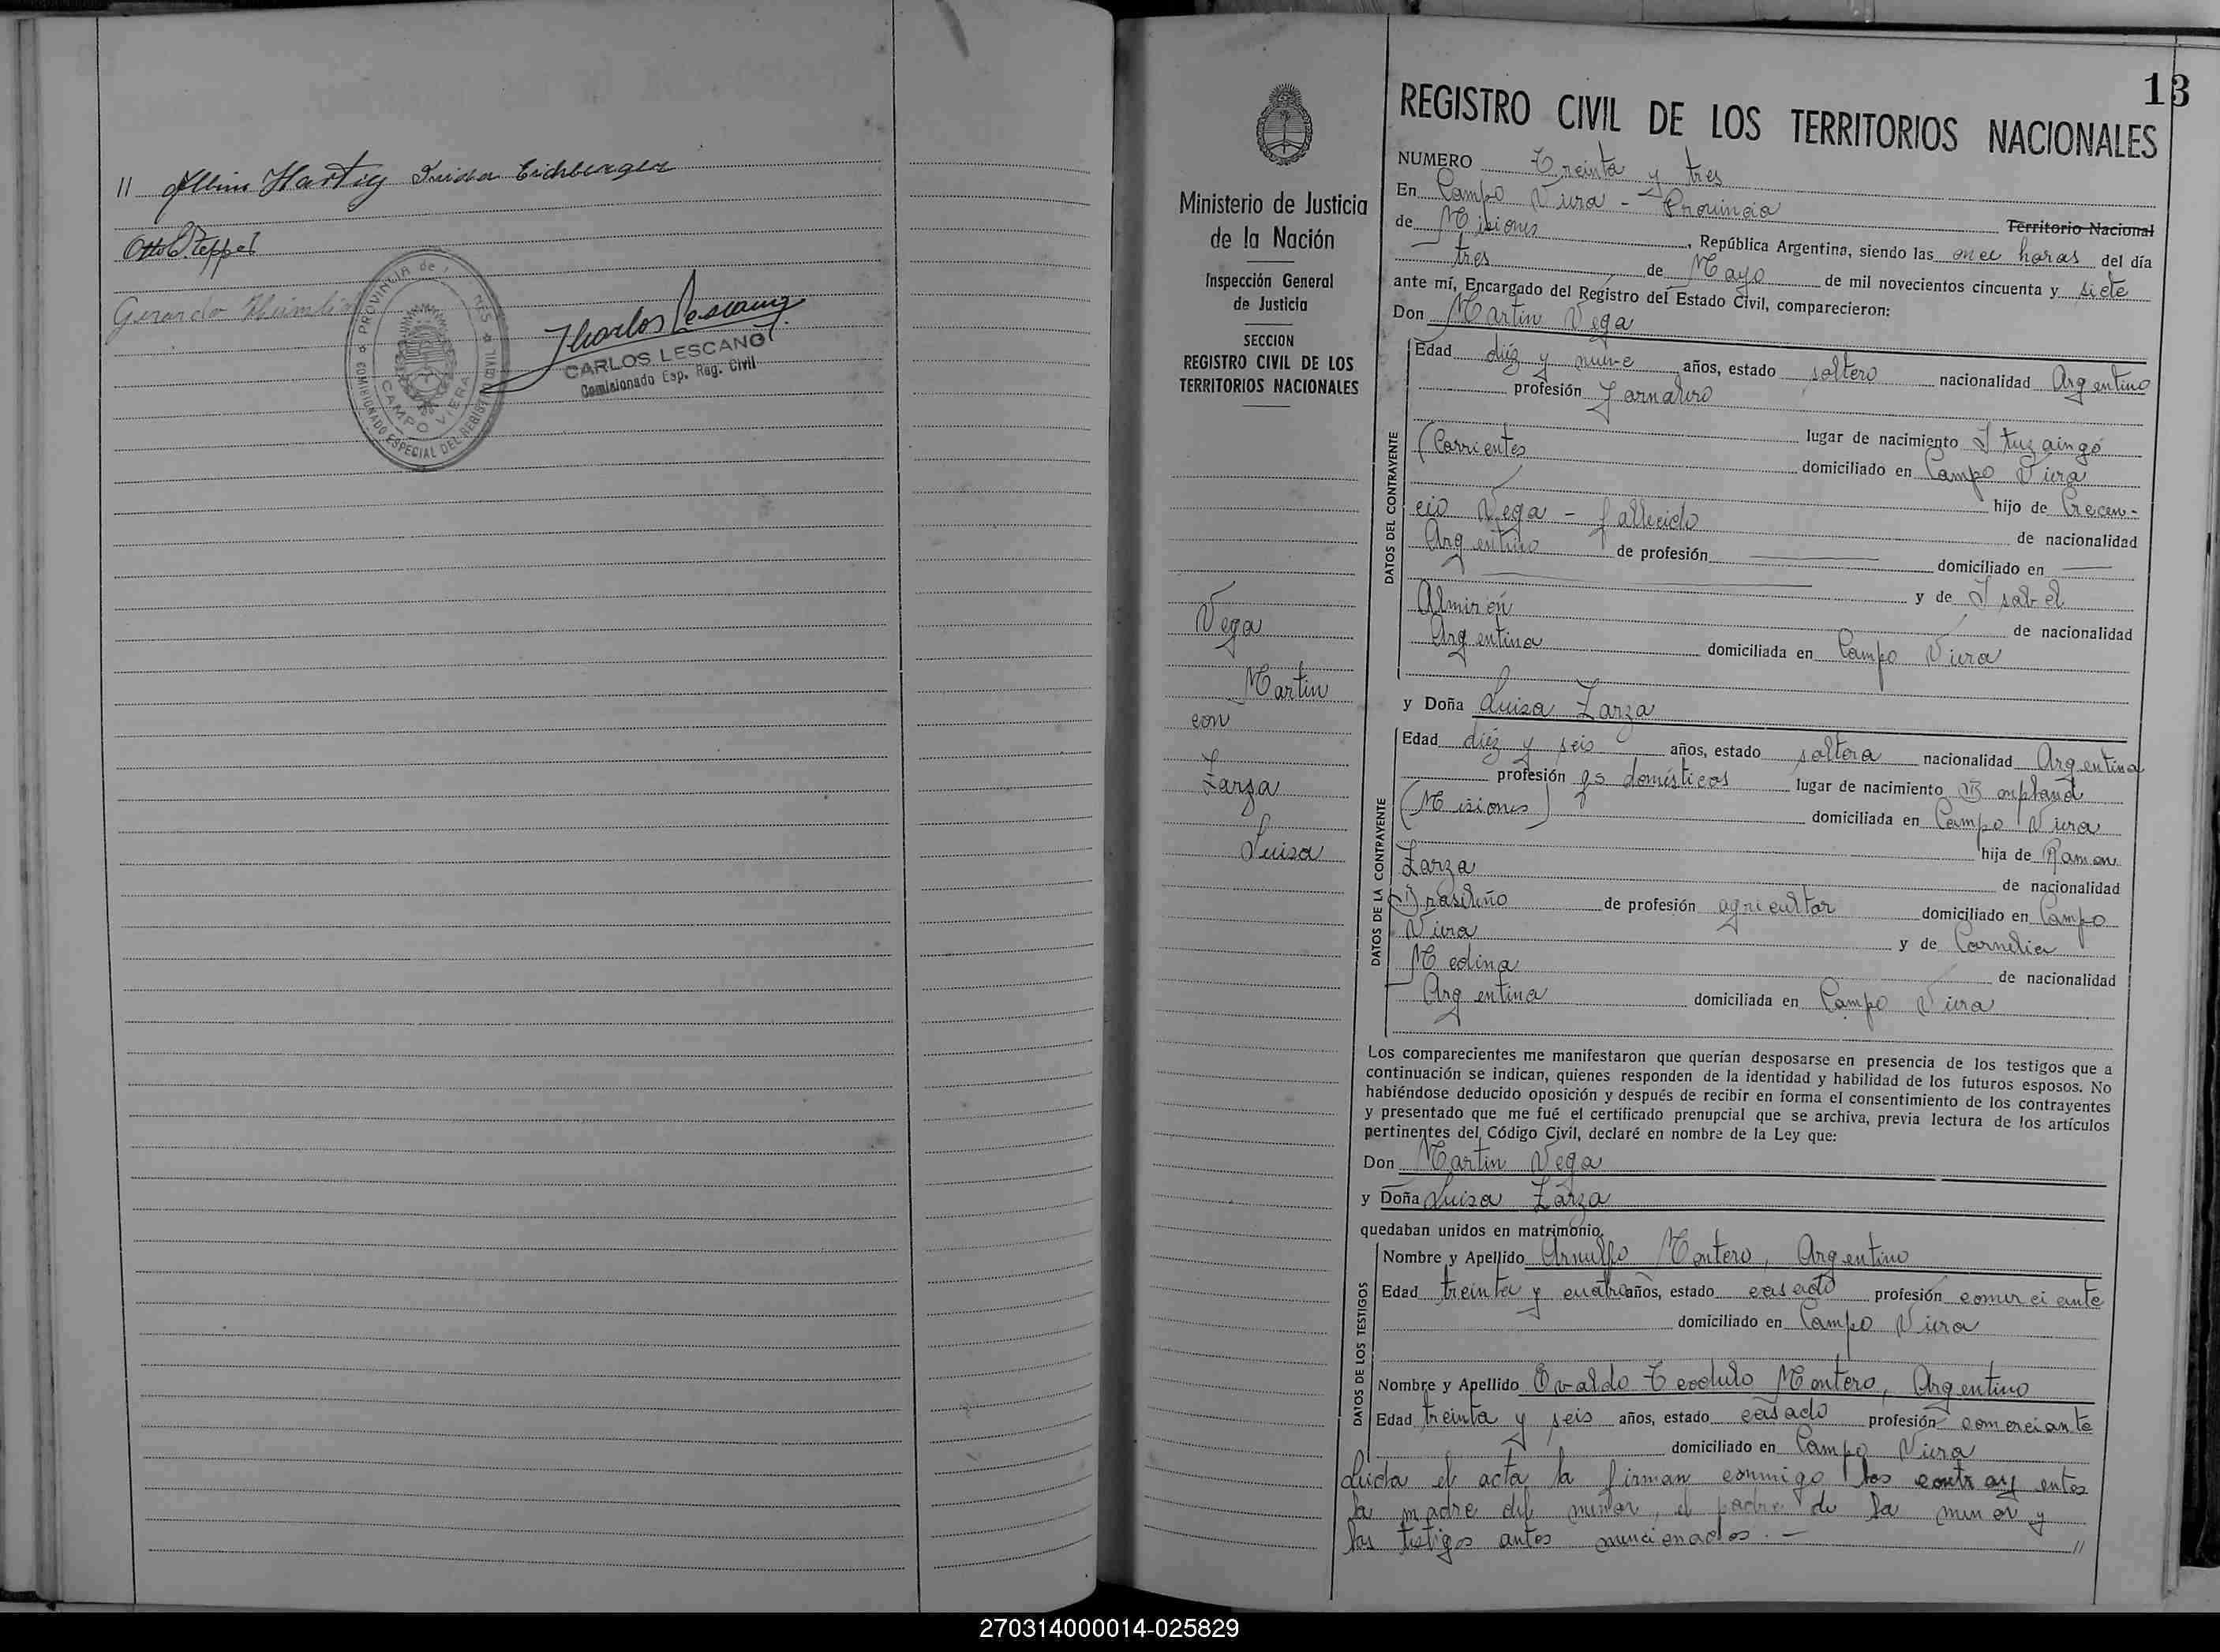 // Albino Hartig Frida Eichberger
Otto C. Teppel
Gerardo
PROVINCIA de MISIONES
COMISIONADO ESPECIAL DEL REGISTRO CIVIL
CAMPO VIERA
CARLOS LESCANO
Comisionado Esp. Reg. Civil
13
Ministerio de Justicia
de la Nación
Inspección General
de Justicia
SECCION
REGISTRO CIVIL DE LOS
TERRITORIOS NACIONALES
Vega
Martin
con
Zarza
Luisa
REGISTRO CIVIL DE LOS TERRITORIOS NACIONALES
NUMERO Treinta y tres
En Campo Viera - Provincia Territorio Nacional
de Misiones, República Argentina, siendo las once horas del día
tres de Mayo de mil novecientos cincuenta y siete
ante mí, Encargado del Registro del Estado Civil, comparecieron:
Don Martin Vega
DATOS DEL CONTRAYENTE
Edad diéz y nueve años, estado soltero nacionalidad Argentino
profesión Jornalero
lugar de nacimiento Ituzaingó
(Corrientes domiciliado en Campo Viera
hijo de Crecen-
cio Vega - fallecido de nacionalidad
Argentino de profesión domiciliado en
y de Isabel
Almirón de nacionalidad
Argentina domiciliada en Campo Viera
y Doña Luisa Zarza
DATOS DE LA CONTRAYENTE
Edad diéz y seis años, estado soltera nacionalidad Argentina
profesión qs domésticos lugar de nacimiento Bonpland
(Misiones) domiciliada en Campo Viera
hija de Ramon
Zarza de nacionalidad
Brasileño de profesión agricultor domiciliado en Campo
Viera y de Cornelia
Medina de nacionalidad
Argentina domiciliada en Campo Viera
Los comparecientes me manifestaron que querían desposarse en presencia de los testigos que a
continuación se indican, quienes responden de la identidad y habilidad de los futuros esposos. No
habiéndose deducido oposición y después de recibir en forma el consentimiento de los contrayentes
y presentado que me fué el certificado prenupcial que se archiva, previa lectura de los artículos
pertinentes del Código Civil, declaré en nombre de la Ley que:
Don Martin Vega
y Doña Luisa Zarza
quedaban unidos en matrimonio.
DATOS DE LOS TESTIGOS
Nombre y Apellido Arnulfo Montero, Argentino
Edad treinta y cuatro años, estado casado profesión comerciante
domiciliado en Campo Viera
Nombre y Apellido Ovaldo Teodulo Montero, Argentino
Edad treinta y seis años, estado casado profesión comerciante
domiciliado en Campo Viera
Leida el acta la firman conmigo los contrayentes
la madre del menor, el padre de la menor y
los testigos antes mencionados. - //
270314000014-025829